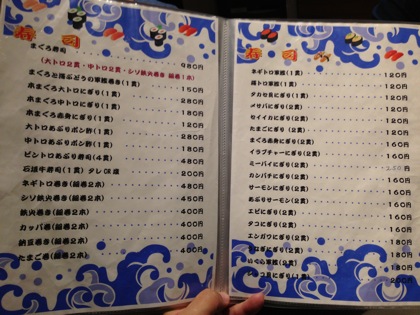 寿司
まぐろ寿司 980円
(大トロ2貫・中トロ2貫・シソ鉄火巻き 細巻1本)
まぐろと海ぶどうの軍艦巻き(1貫) 150円
本まぐろ大トロにぎり(1貫) 280円
本まぐろ中トロにぎり(1貫) 180円
本まぐろ赤身にぎり(1貫) 120円
大トロあぶりポン酢(1貫) 280円
中トロあぶりポン酢(1貫) 180円
ビントロあぶり寿司(4貫) 480円
石垣牛寿司(1貫) タレOR塩 200円
ネギトロ巻き(細巻2本) 480円
シソ鉄火巻き(細巻2本) 450円
鉄火巻き(細巻2本) 400円
カッパ巻(細巻2本) 400円
納豆巻き(細巻2本) 400円
たまご巻(細巻2本) 400円
寿司
ネギトロ軍艦(1貫) 120円
鉄トロ軍艦(1貫) 120円
タカセ貝にぎり(1貫) 120円
メサバにぎり(2貫) 120円
セイイカにぎり(2貫) 120円
たまごにぎり(2貫) 120円
まぐろ赤身にぎり(2貫) 160円
イラブチャーにぎり(2貫) 160円
ミーバイにぎり(2貫)
カンパチにぎり(2貫) 160円
サーモンにぎり(2貫) 160円
あぶりサーモン(2貫) 160円
エビにぎり(2貫) 160円
タコにぎり(2貫) 160円
エンガワにぎり(2貫) 180円
にぎり(2貫) 180円
いくら軍艦(2貫) 180円
にぎり(1貫)